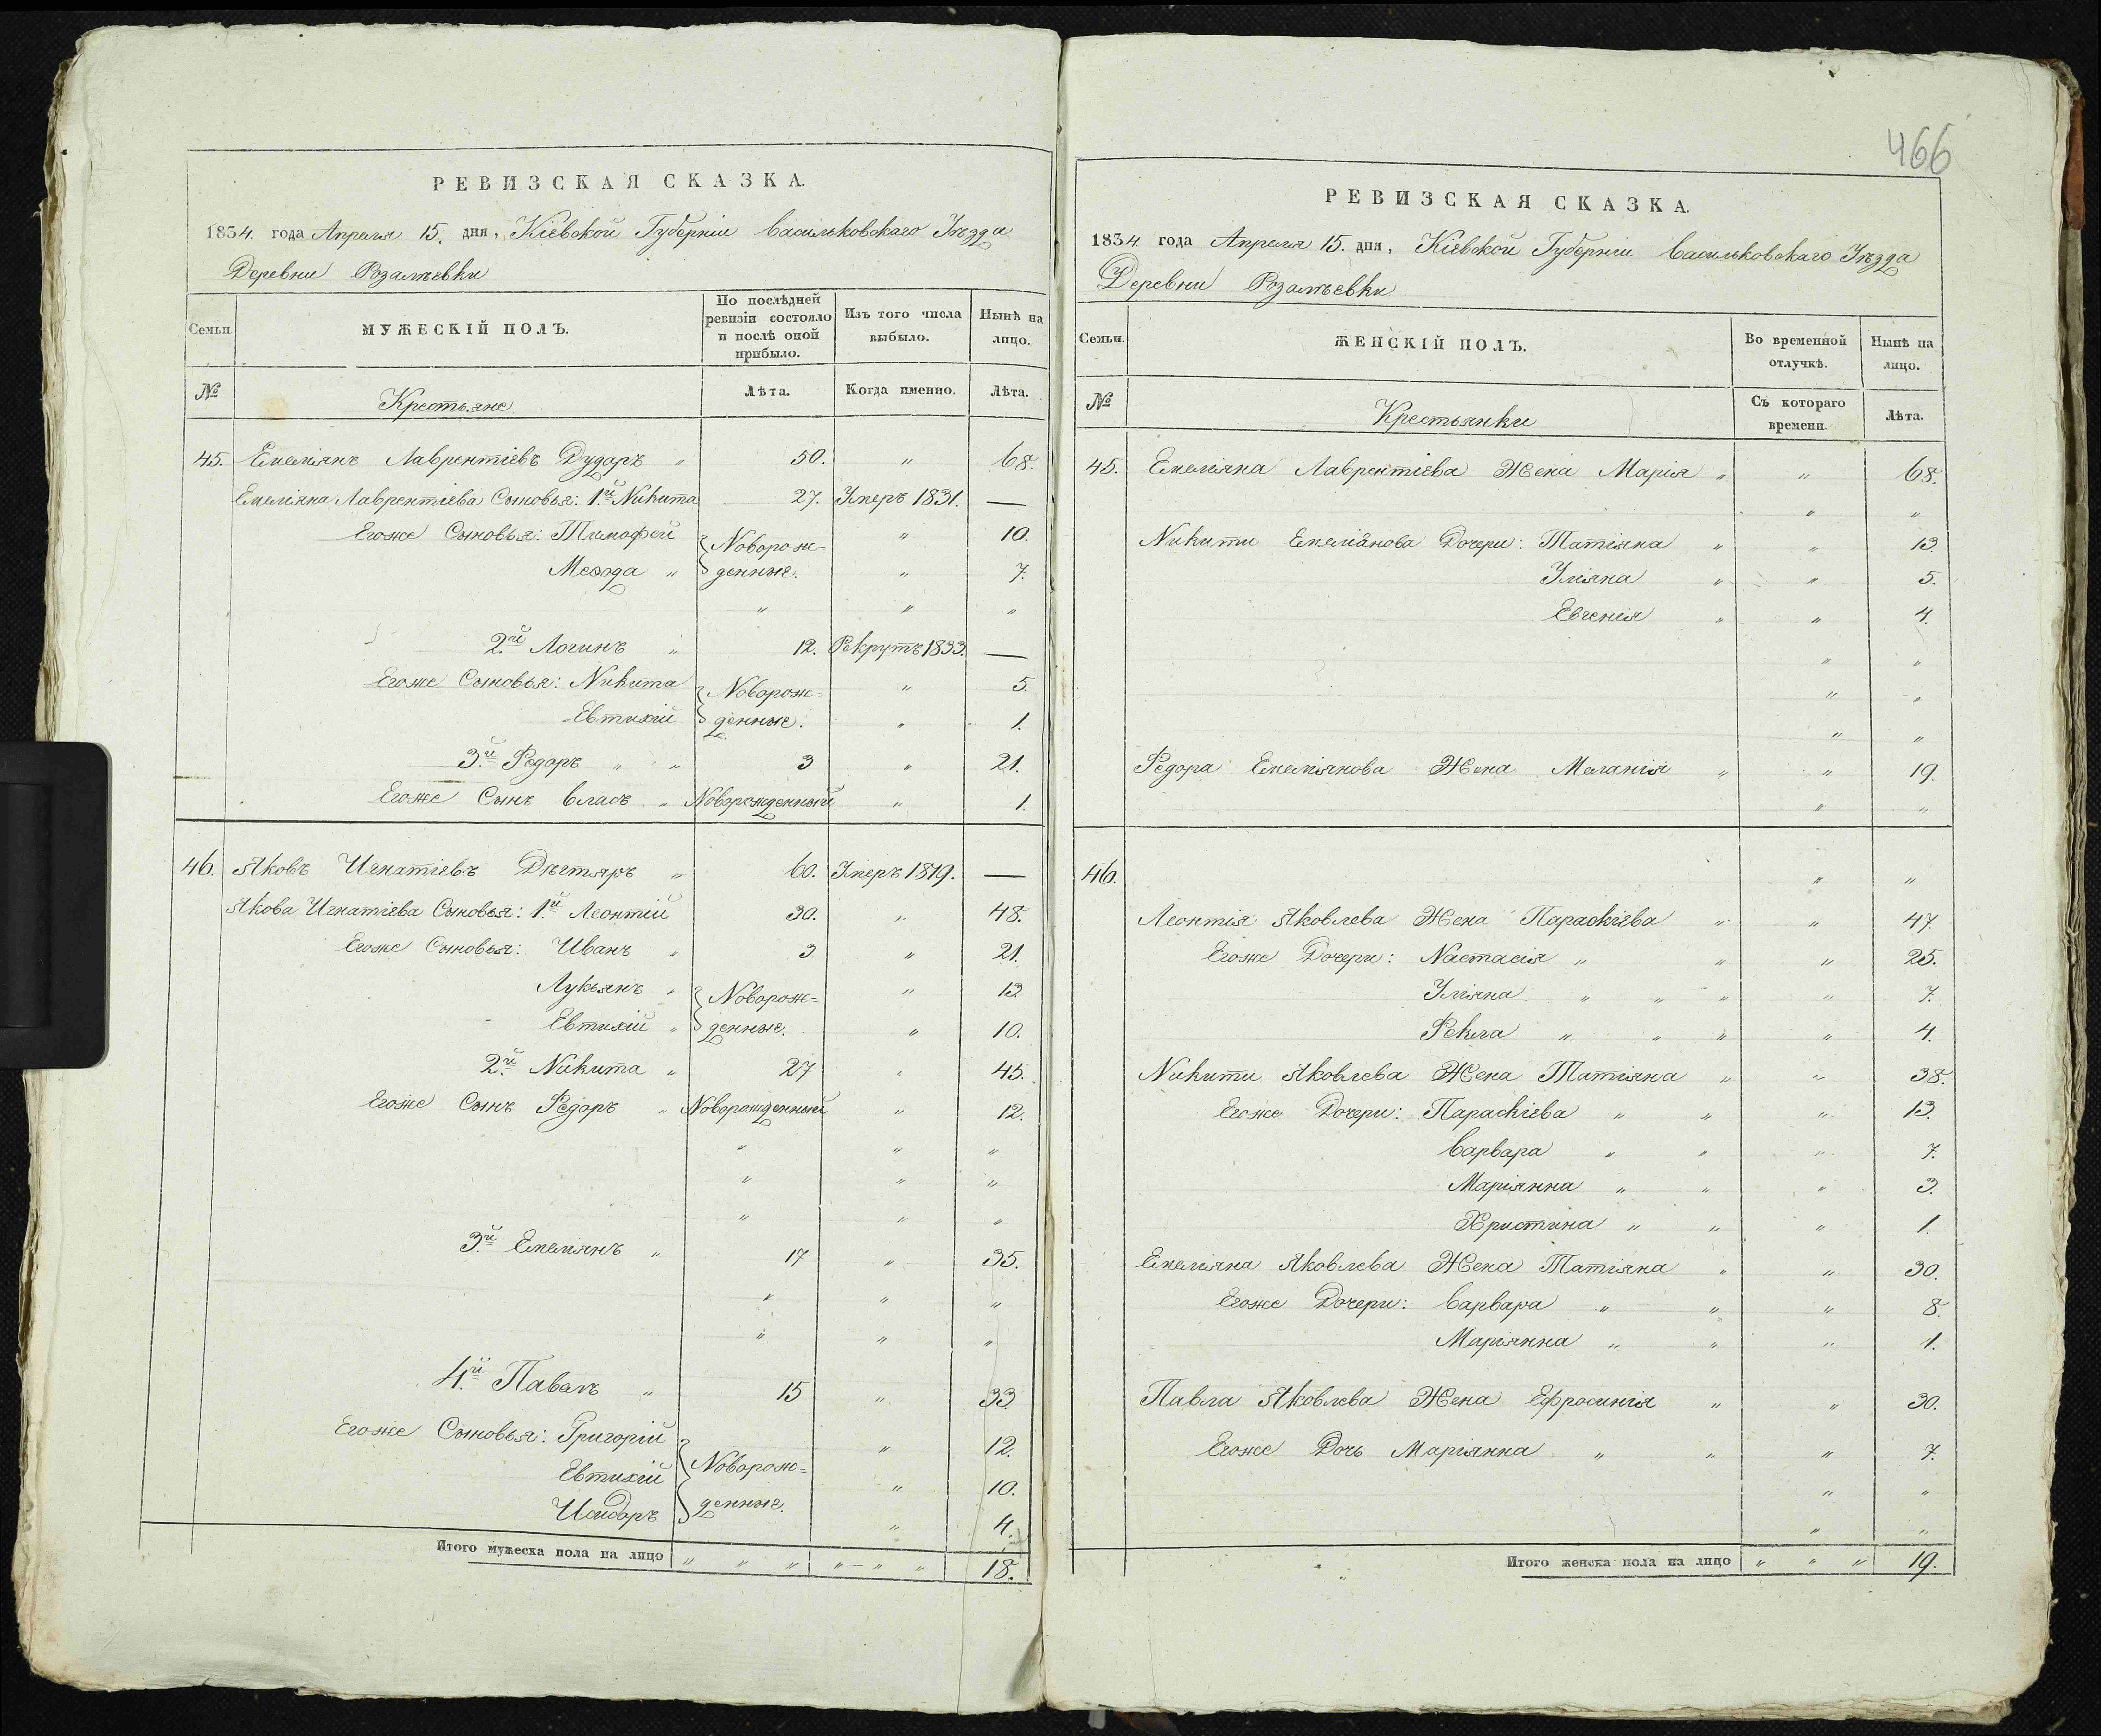 466
РЕВИЗСКАЯ СКАЗКА.
1834. года Апреля 15. дня, Кіевской Губерніи Васильковскаго Уѣзда
Деревни Розалѣевки
Семьи. МУЖЕСКІЙ ПОЛЪ. По послѣдней ревизіи состояло и послѣ оной прибыло. Изъ того числа выбыло. Нынѣ на лицо.
№ Крестьяне Лѣта. Когда именно. Лѣта.
45. Емеліянъ Лаврентіевъ Дударъ " 50. " 68.
Емеліяна Лаврентіева Сыновья: 1.й Никита 27. Умеръ 1831. —
Егоже Сыновья: Тимофей Новорож= " 10.
Мефода " денные. " 7.
" " "
2.й Логинъ " 12. Рекрутъ 1833. —
Егоже Сыновья: Никита Новорож= " 5.
Евтихій денные. " 1.
3.й Федоръ " " 3 " 21.
Егоже Сынъ Власъ " Новорожденный " 1.
46. Яковъ Игнатіевъ Дѣгтяръ " 60. Умеръ 1819. —
Якова Игнатіева Сыновья: 1.й Леонтій 30. " 48.
Егоже Сыновья: Иванъ " 3 " 21.
Лукьянъ " Новорож= " 13.
Евтихій " денные. " 10.
2.й Никита " 27 " 45.
Егоже Сынъ Федоръ " Новорожденный " 12.
" " "
" " "
" " "
3.й Емеліянъ " 17 " 35.
" " "
" " "
4.й Павелъ " 15 " 33.
Егоже Сыновья: Григорій " 12.
Евтихій Новорож= " 10.
Исидоръ денные. " 4.
Итого мужеска пола на лицо " " " " — " " 18.
РЕВИЗСКАЯ СКАЗКА.
1834 года Апреля 15. дня, Кіевской Губерніи Васильковскаго Уѣзда
Деревни Розалѣевки
Семьи. ЖЕНСКІЙ ПОЛЪ. Во временной отлучкѣ. Нынѣ на лицо.
№ Крестьянки Съ котораго времени. Лѣта.
45. Емеліяна Лаврентіева Жена Марія " " 68.
" "
Никиты Емеліянова Дочери: Татіяна " " 13.
Уліяна " " 5.
Евгенія " " 4.
" "
" "
" "
Федора Емеліянова Жена Меланія " " 19.
" "
46. " "
Леонтія Яковлева Жена Параскіева " " 47.
Егоже Дочери: Настасія " " " 25.
Уліяна " " " " 7.
Фекла " " " " 4.
Никиты Яковлева Жена Татіяна " " 38.
Егоже Дочери: Параскіева " " " 13.
Варвара " " " 7.
Маріянна " " " 3.
Христина " " " 1.
Емеліяна Яковлева Жена Татіяна " " 30.
Егоже Дочери: Варвара " " " 8.
Маріянна " " " 1.
Павла Яковлева Жена Ефросинія " " 30.
Егоже Дочь Маріянна " " " 7.
" "
" "
Итого женска пола на лицо " " " 19.